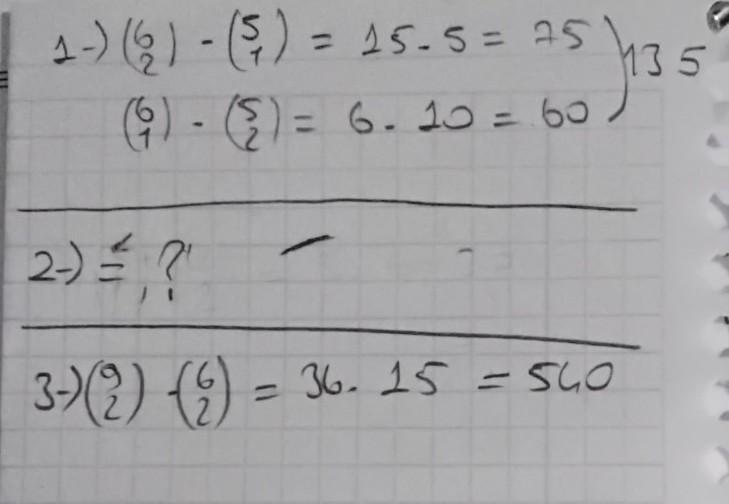 1-) (6 2) - (5 1) = 15 - 5 = 75
(6 1) - (5 2) = 6 - 10 = 60 ) 135
2-) = , ?
3-) (9 2) - (6 2) = 36 . 15 = 540